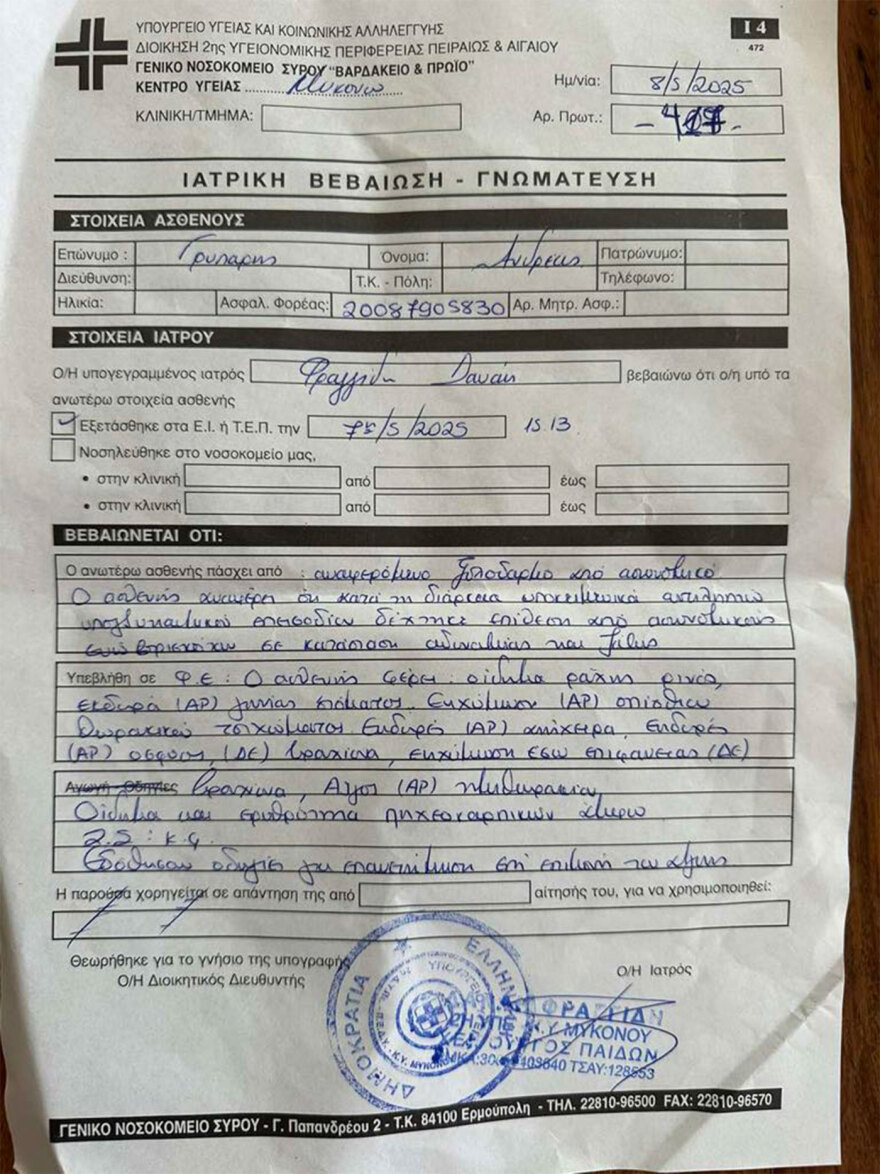 ΥΠΟΥΡΓΕΙΟ ΥΓΕΙΑΣ ΚΑΙ ΚΟΙΝΩΝΙΚΗΣ ΑΛΛΗΛΕΓΓΥΗΣ
ΔΙΟΙΚΗΣΗ 2ης ΥΓΕΙΟΝΟΜΙΚΗΣ ΠΕΡΙΦΕΡΕΙΑΣ ΠΕΙΡΑΙΩΣ & ΑΙΓΑΙΟΥ
ΓΕΝΙΚΟ ΝΟΣΟΚΟΜΕΙΟ ΣΥΡΟΥ "ΒΑΡΔΑΚΕΙΟ & ΠΡΩΪΟ"
ΚΕΝΤΡΟ ΥΓΕΙΑΣ Μυκόνου
ΚΛΙΝΙΚΗ/ΤΜΗΜΑ:
Ι 4
472
Ημ/νία: 8/5/2025
Αρ. Πρωτ.:
ΙΑΤΡΙΚΗ ΒΕΒΑΙΩΣΗ - ΓΝΩΜΑΤΕΥΣΗ
ΣΤΟΙΧΕΙΑ ΑΣΘΕΝΟΥΣ
Επώνυμο : Γρυπάρης Όνομα: Ανδρέας Πατρώνυμο:
Διεύθυνση: Τ.Κ. - Πόλη: Τηλέφωνο:
Ηλικία: Ασφαλ. Φορέας: 20087905830 Αρ. Μητρ. Ασφ.:
ΣΤΟΙΧΕΙΑ ΙΑΤΡΟΥ
Ο/Η υπογεγραμμένος ιατρός Φραγγίδη Δανάη βεβαιώνω ότι ο/η υπό τα
ανωτέρω στοιχεία ασθενής
Εξετάσθηκε στα Ε.Ι. ή Τ.Ε.Π. την /5/2025 15.13
Νοσηλεύθηκε στο νοσοκομείο μας,
• στην κλινική από έως
• στην κλινική από έως
ΒΕΒΑΙΩΝΕΤΑΙ ΟΤΙ:
Ο ανωτέρω ασθενής πάσχει από : αναφερόμενο ξυλοδαρμό από αστυνομικό
Ο ασθενής αναφέρει ότι κατά τη διάρκεια υποκειμενικά αντιληπτού
υπογλυκαιμικού επεισοδίου δέχτηκε επίθεση από αστυνομικούς
ενώ βρισκόταν σε κατάσταση αδυναμίας και ζάλης
Υπεβλήθη σε Φ.Ε : Ο ασθενής φέρει : οίδημα ράχης ρινός,
εκδορά (ΑΡ) γωνίας στόματος. Εκχύμωση (ΑΡ) οπίσθιου
θωρακικού τοιχώματος Εκδορές (ΑΡ) αντίχειρα, Εκδορές
(ΑΡ) οσφύος, (ΔΕ) βραχίονα, εκχύμωση έσω επιφάνειας (ΔΕ)
Αγωγή - Οδηγίες βραχίονα, Άλγος (ΑΡ) ημιθωρακίου,
Οίδημα και ερυθρότητα πηχεοκαρπικών άμφω
Ζ.Σ : κ.φ.
Εδόθησαν οδηγίες για επανεκτίμηση επί επιμονή του άλγους
Η παρούσα χορηγείται σε απάντηση της από αίτησής του, για να χρησιμοποιηθεί:
Θεωρήθηκε για το γνήσιο της υπογραφής
Ο/Η Διοικητικός Διευθυντής
Ο/Η Ιατρός
ΕΛΛΗΝ
ΔΗΜΟΚΡΑΤΙΑ
Κ.Υ ΜΥΚΟΝΟΥ
ΠΑΙΔΩΝ
ΤΣΑΥ:128553
ΓΕΝΙΚΟ ΝΟΣΟΚΟΜΕΙΟ ΣΥΡΟΥ - Γ. Παπανδρέου 2 - Τ.Κ. 84100 Ερμούπολη - ΤΗΛ. 22810-96500 FAX: 22810-96570